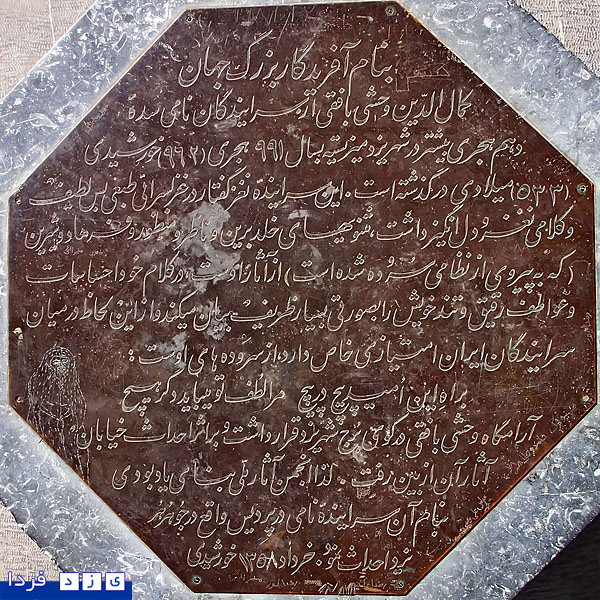 بنام آفریدگار بزرگ جهان
کمال الدین وحشی بافقی از سرایندگان نامی سده
دهم هجری بیشتر در شهر یزد میزیسته بسال ۹۹۱ هجری (۹۶۲ خورشیدی
(۵۳۳) میلادی درگذشته است. این سراینده نغز گفتار در غزلسرائی طبعی بس لطیف
و کلامی نغز و دل انگیز داشت، مثنویهای خلد برین و ناظر و منظور و فرهاد و شیرین
(که به پیروی از نظامی سروده شده است) از آثار اوست، در کلام خود احساسات
و عواطف رقیق و تند خویش را بصورتی بسیار ظریف بیان میکند و از این لحاظ در میان
سرایندگان ایران امتیازی خاص دارد، از سروده های اوست:
براه این امید پیچ در پیچ مرا لطف تو میباید دگر هیچ
آرامگاه وحشی بافقی در کوی سر برج شهر یزد قرار داشت و بر اثر احداث خیابان
آثار آن از بین رفت. لذا انجمن آثار ملی بنای یادبودی
بنام آن سراینده نامی در پردیس واقع در جوهر هر
یزد احداث نمود. خرداد ۱۳۵۸ خورشیدی
یزد فردا